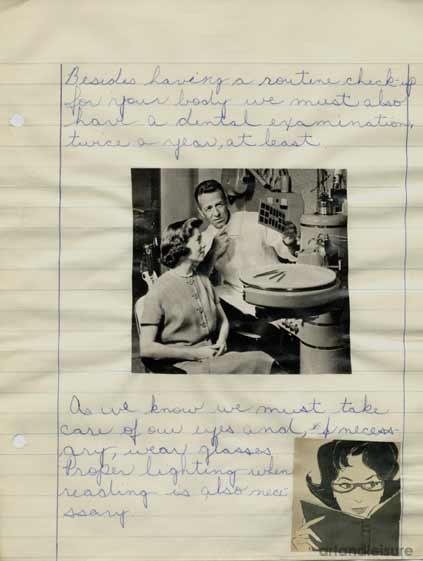 Besides having a routine check-up
for your body we must also
have a dental examination,
twice a year, at least
As we know we must take
care of our eyes and, if necess-
ary, wear glasses.
Proper lighting when
reading is also nece
ssary.
artandleisure